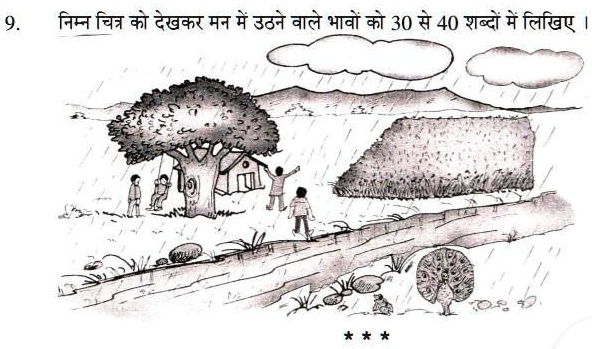 9. निम्न चित्र को देखकर मन में उठने वाले भावों को 30 से 40 शब्दों में लिखिए ।
* * *